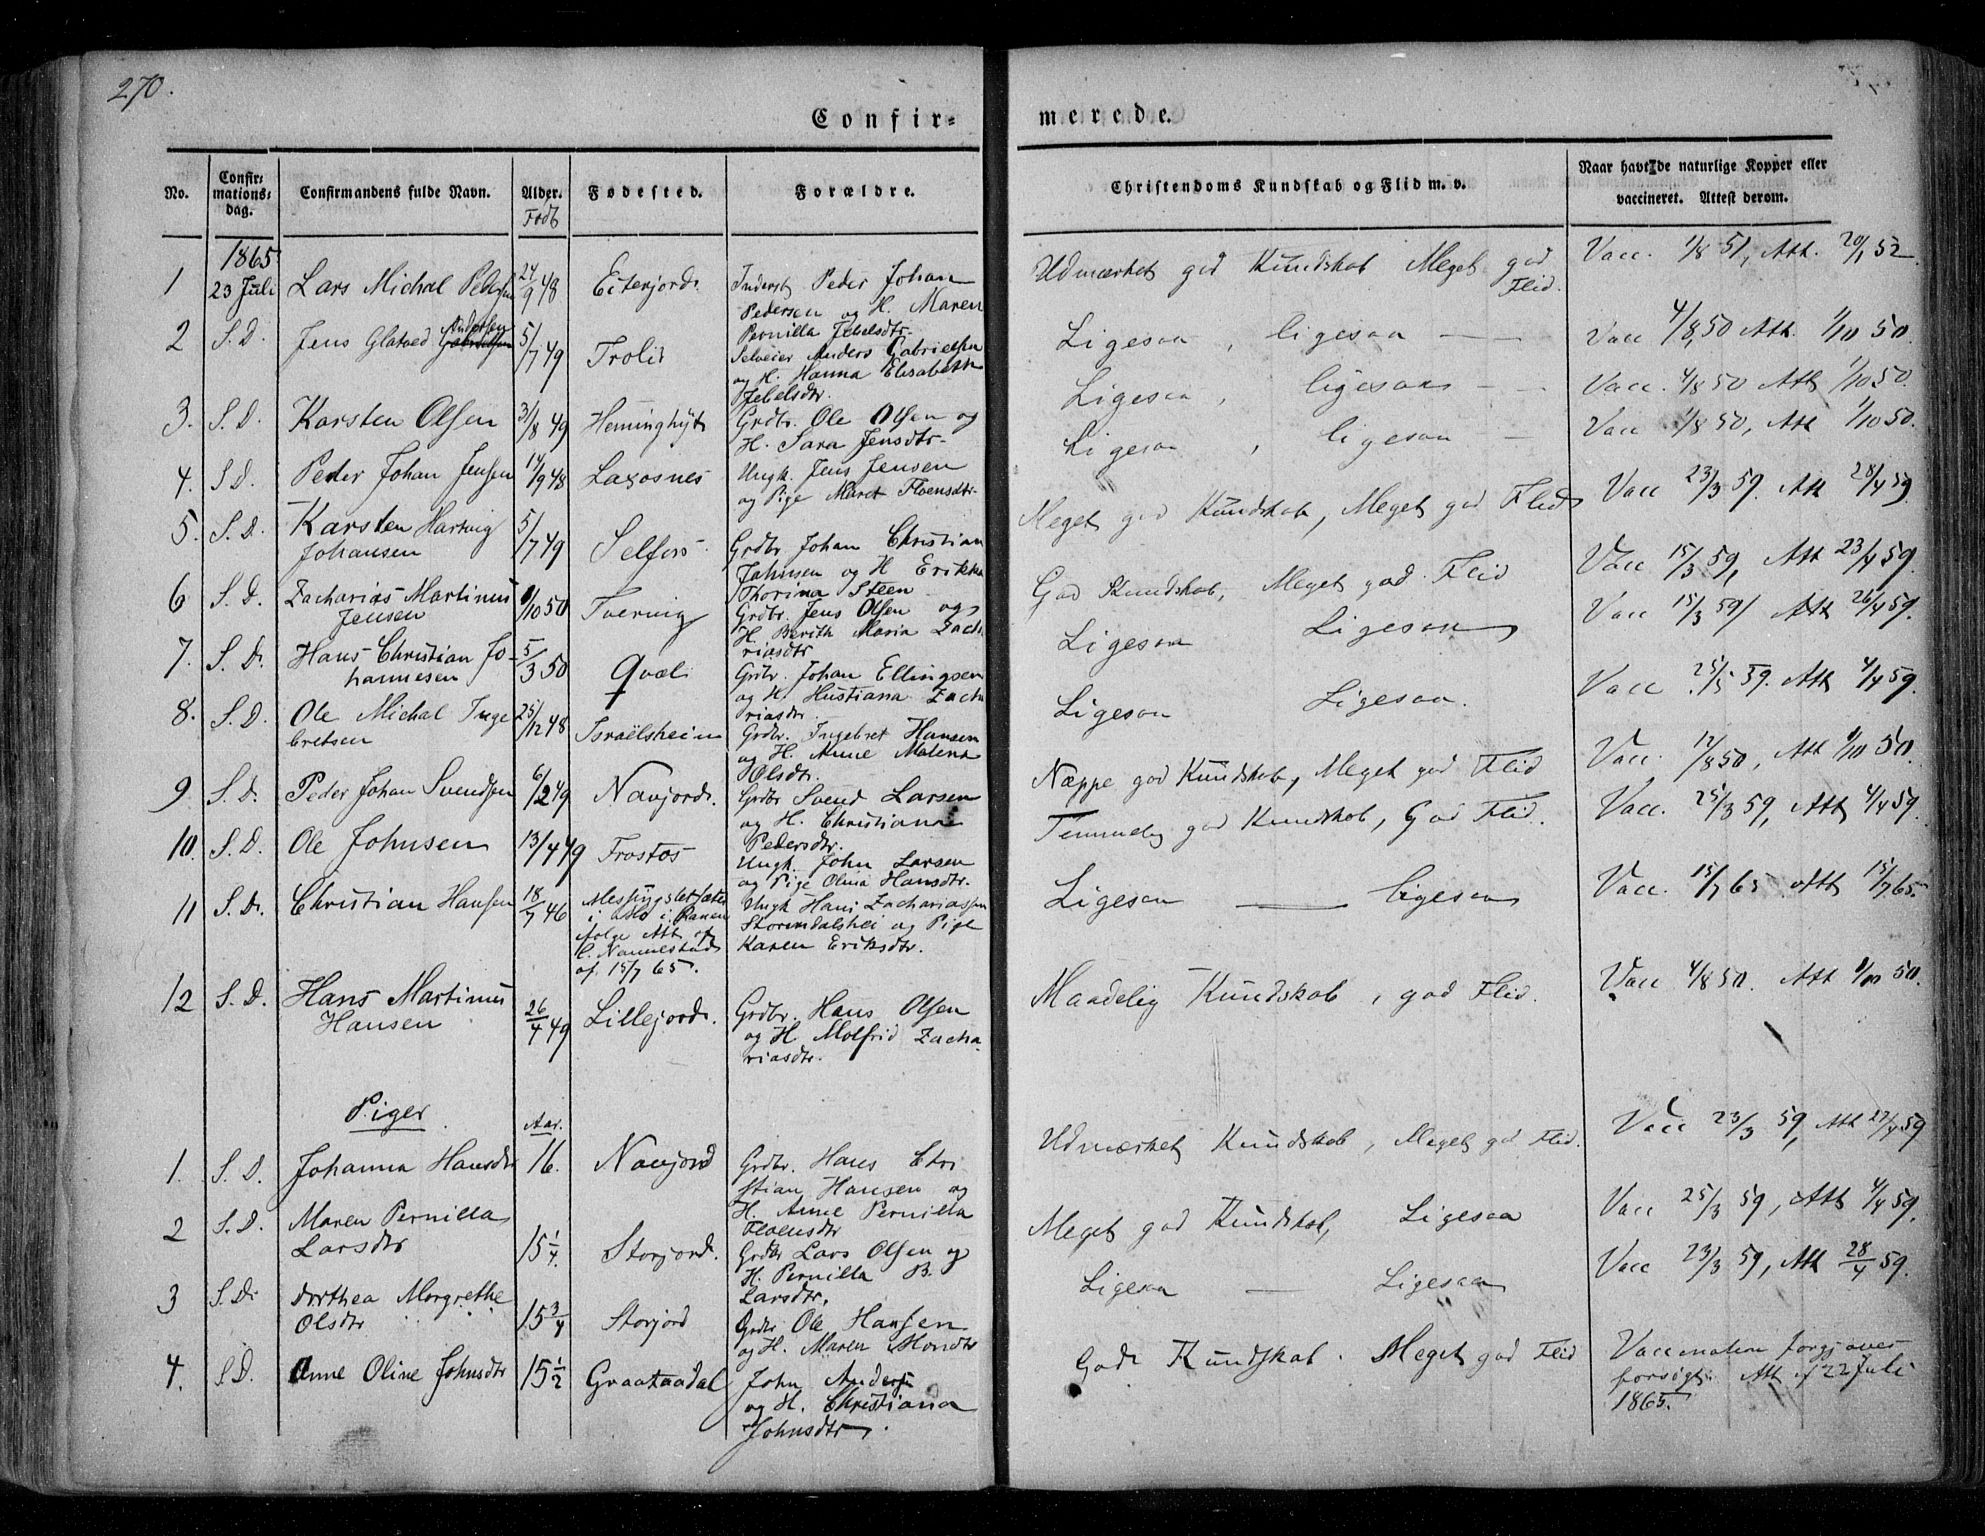 270.
Confir- merede.
No. Confirmations-dag. Confirmandens fulde Navn. Alder. Født Fødested. Forældre. Christendoms Kundskab og Flid m. v. Naar havt de naturlige Kopper eller vaccineret. Attest derom.
1865
1 23 Juli Lars Michal Pedersen 24/9 48 Eiterjord Inderst Peder Johan Pedersen og H. Maren Pernilla Jebelsdtr. Udmærket god Kundskab Meget god Flid. Vacc. 1/8 51, Att. 20/1 52.
2 S. D. Jens Glatved Andersen 5/7 49 Trolid Selveier Anders Gabrielsen og H. Hanna Elisabeth Jebelsdtr. Ligesaa, ligesaa Vacc 4/8 50 Att. 1/10 50.
3. S. D. Karsten Olsen 3/8 49 Heminghyt Grdbr. Ole Olsen og H. Sara Jensdtr. Ligesaa, ligesaa Vacc. 4/8 50 Att 1/10 50.
4. S. D. Peder Johan Jensen 14/9 48 Laxosnes Ungk. Jens Jensen og Pige Maret Floensdtr. Ligesaa, ligesaa Vacc 1/8 50, Att 1/10 50.
5. S. D. Karsten Hartvig Johansen 5/7 49 Selfors Grdbr Johan Christian Johnsen og H Erikka Thorina Steen Meget god Kundskab, Meget god Flid Vacc 23/3 59. Att 28/4 59
6 S. D. Zacharias Martinus Jensen /10 50 Tvervig Grdbr. Jens Olsen og H. Berith Maria Zachriasdtr God Kundskab, Meget god Flid Vacc 15/3 59, Att 23/4 59.
7. S. D. Hans Christian Johannesen 5/3 50 Qvæl Grdbr. Johan Ellingsen og H. Hustiana Zachriasdtr. Ligesaa Ligesaa Vacc 15/3 59, Att 26/4 59.
8. S. D. Ole Michal Ingebretsen 25/12 48 Israëlsheim Grdbr. Ingebret Hansen og H. Anne Malena Olsdtr. Ligesaa Ligesaa. Vacc 25/3 59. Att 4/4 59.
9 S. D. Peder Johan Svendsen 6/2 49 Navjord. Grdbr Svend Larsen og H. Christiana Pedersdtr. Næppe god Kundskab, Meget god Flid Vacc. 12/8 50, Att 1/10 50.
10. S. D. Ole Johnsen 13/4 49 Frostos Ungk. John Larsen og Pige Olina Hansdtr. Temmelig god Kundskab, God Flid. Vacc. 25/3 59, Att 4/4 59.
11 S. D. Christian Hansen 18/7 46 i Mo i Ranen ifølge Att af af 15/7 65. Ungk Hans Zachariassen Stormdalshei og Pige Karen Eriksdtr. Ligesaa ligesaa Vacc. 15/7 65 Att 15/7 65.
12 S. D. Hans Martinus Hansen 26/4 49 Lillejord. Grdbr. Hans Olsen og H Molfrid Zachariasdtr. Maadelig Kundskab, god Flid. Vacc 4/8 50. Att 1/10 50.
Piger Aar.
1. S. D. Johanna Hansdtr 16. Navjord Grdbr. Hans Christian Hansen og H. Anne Pernilla Floensdtr Udmærket Kundskab, Meget god Flid. Vacc 23/3 59, Att 27/4 59
2 S. D. Maren Pernilla Larsdtr 15 1/4. Storjord. Grdbr Lars Olsen og H. Pernilla B. Larsdtr. Meget god Kundskab, Ligesaa Vacc 25/3 59, Att 4/4 59.
3 S. D. Dorthea Margrethe Olsdtr 15 3/4 Storjord Grdbr Ole Hansen og H. Maren Mondtr Ligesaa Ligesaa Vacc 23/3 59, Att 28/4 59.
4. S. D. Anne Oline Johnsdtr 15 1/2 Graataadal John Anders. og H. Christiana Johnsdtr. Godt Kundskab. Meget god Flid Vaccination forgjæves forsøgt. Att af 22 Juli 1865.